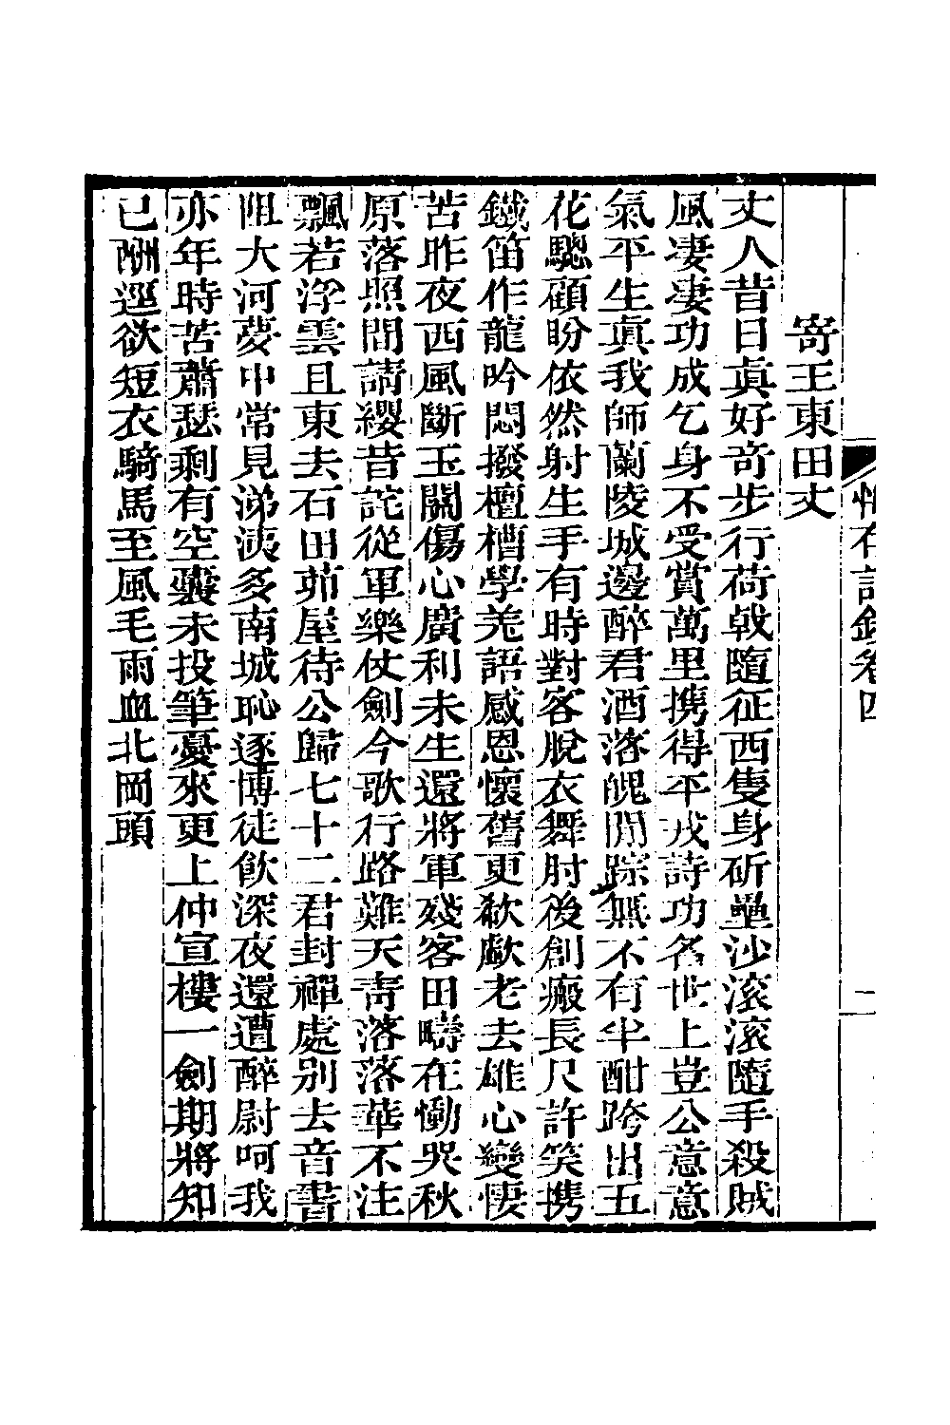 惟存詩鈔卷四
二
寄王東田丈
丈人昔日眞好奇步行荷戟隨征西隻身斫壘沙滚滚隨手殺賊
風凄凄功成乞身不受賞萬里携得平戎詩功名世上豈公意意
氣平生眞我師蘭陵城邊醉君酒落魄閒踪無不有半酣跨出五
花驄顧盼依然射生手有時對客脫衣舞肘後創瘢長尺許笑携
鐵笛作龍吟悶撥檀槽學羌語感恩懷舊更欷歔老去雄心變悽
苦昨夜西風斷玉關傷心廣利未生還將軍殘客田疇在慟哭秋
原落照間請纓昔詫從軍樂仗劍今歌行路難天靑落落華不注
飄若浮雲且東去石田茆屋待公歸七十二君封禪處别去音書
阻大河夢中常見涕洟多南城恥逐博徒飲深夜還遭醉尉呵我
亦年時苦蕭瑟剩有空囊未投筆憂來更上仲宣樓一劍期將知
已酬逕欲短衣騎馬至風毛雨血北岡頭